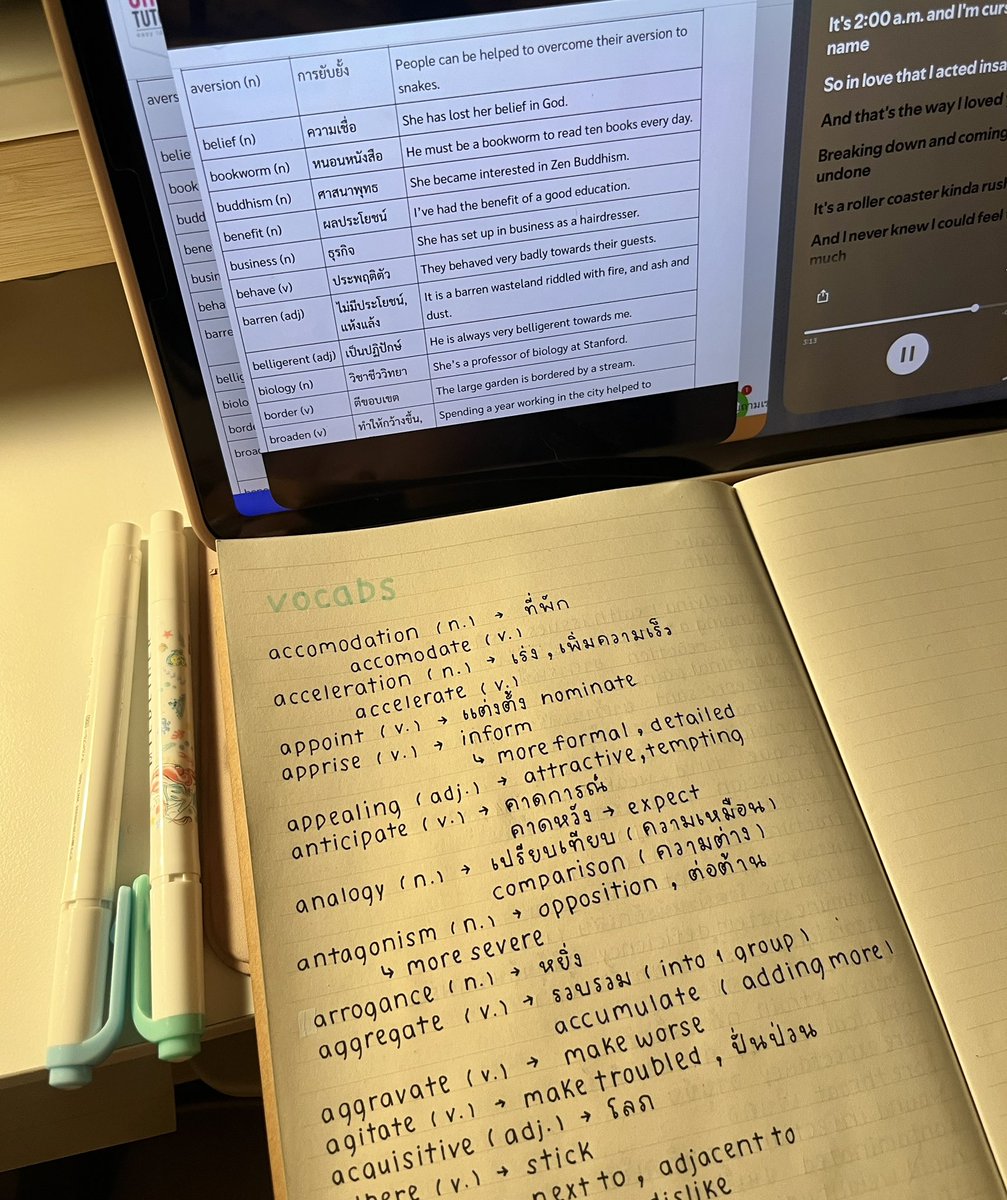 TUT
avers
belie
book
budd
bene
busin
beha
barre
bellig
biolo
bord
broad
aversion (n) การยับยั้ง People can be helped to overcome their aversion to
snakes.
belief (n) ความเชื่อ She has lost her belief in God.
bookworm (n) หนอนหนังสือ He must be a bookworm to read ten books every day.
buddhism (n) ศาสนาพุทธ She became interested in Zen Buddhism.
benefit (n) ผลประโยชน์ I've had the benefit of a good education.
business (n) ธุรกิจ She has set up in business as a hairdresser.
behave (v) ประพฤติตัว They behaved very badly towards their guests.
barren (adj) ไม่มีประโยชน์, It is a barren wasteland riddled with fire, and ash and
แห้งแล้ง dust.
belligerent (adj) เป็นปฏิปักษ์ He is always very belligerent towards me.
biology (n) วิชาชีววิทยา She's a professor of biology at Stanford.
border (v) ตีขอบเขต The large garden is bordered by a stream.
broaden (v) ทำให้กว้างขึ้น, Spending a year working in the city helped to
It's 2:00 a.m. and I'm curs
name
So in love that I acted insa
And that's the way I loved
Breaking down and coming
undone
It's a roller coaster kinda rush
And I never knew I could feel
much
3:13
1
vocabs
accomodation (n.) → ที่พัก
accomodate (v.)
acceleration (n.) → เร่ง, เพิ่มความเร็ว
accelerate (v.)
appoint (v.) → แต่งตั้ง nominate
apprise (v.) → inform
↳ more formal, detailed
appealing (adj.) → attractive, tempting
anticipate (v.) → คาดการณ์
คาดหวัง → expect
analogy (n.) → เปรียบเทียบ (ความเหมือน)
comparison (ความต่าง)
antagonism (n.) → opposition, ต่อต้าน
↳ more severe
arrogance (n.) → หยิ่ง
aggregate (v.) → รวบรวม (into 1 group)
accumulate (adding more)
aggravate (v.) → make worse
agitate (v.) → make troubled, ปั่นป่วน
acquisitive (adj.) → โลภ
here (v.) → stick
next to, adjacent to
dislike